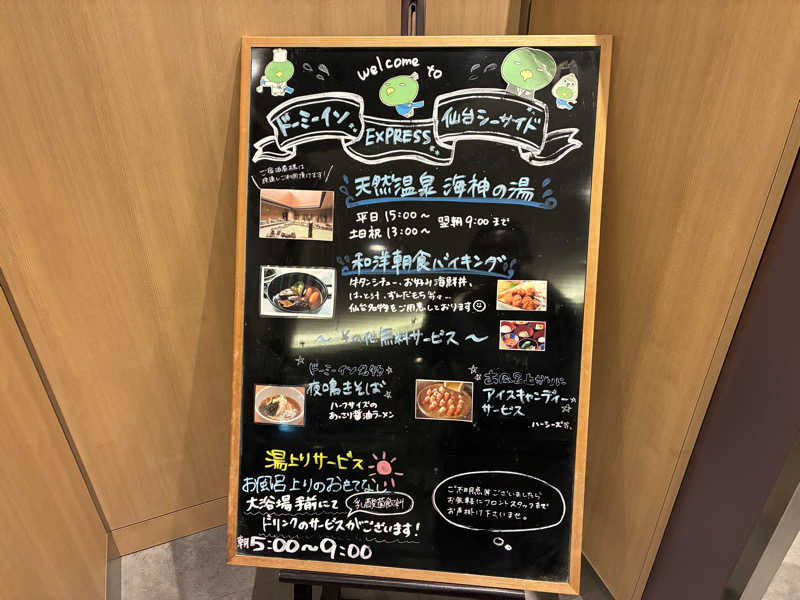 welcome to
ドーミーイン
EXPRESS
仙台シーサイド
ご宿泊者様は
天然温泉 海神の湯
平日 15:00~
土日祝 13:00~
翌朝 9:00 まで
和洋朝食バイキング
牛タンシチュー、お好み海鮮丼、
はっと汁、ずんだもち等々…
仙台名物をご用意しております
~その他無料サービス~
ドーミーイン名物
夜鳴きそば
ハーフサイズの
あっさり醤油ラーメン
お風呂上がりに
アイスキャンディー
サービス
湯上りサービス
お風呂上りのおもてなし
大浴場手前にて
乳酸菌飲料
ドリンクのサービスがございます!
朝5:00~9:00
ご不明点等ございましたら
お気軽にフロントスタッフまで
お声掛け下さいませ。